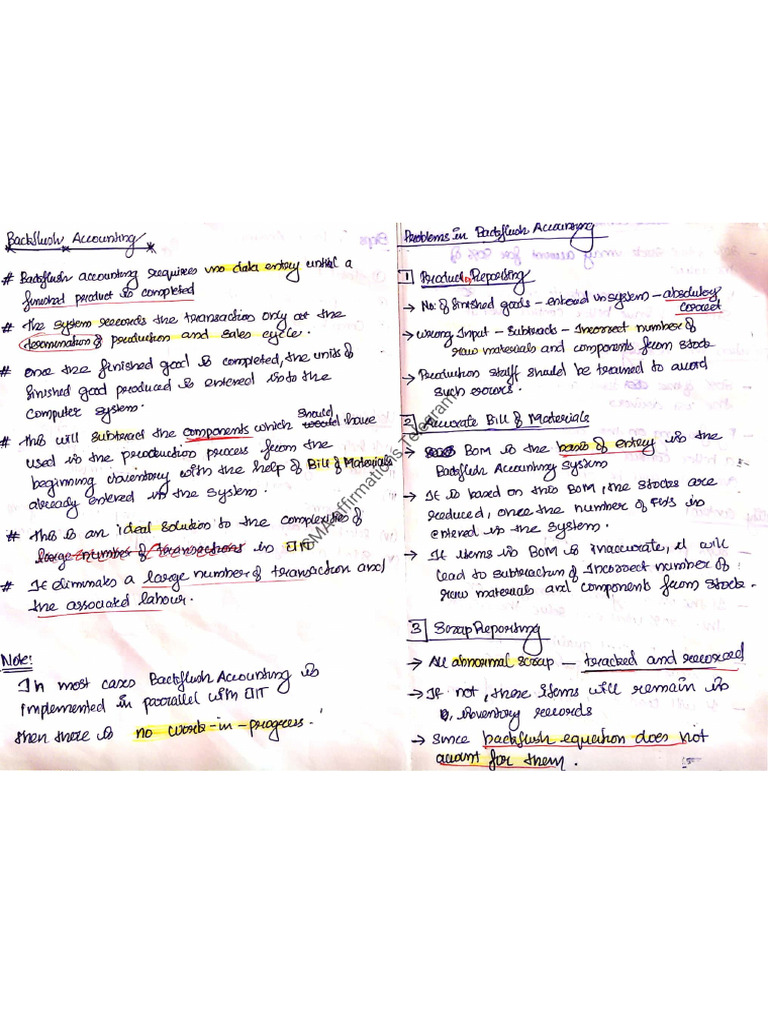 Backflush Accounting
# Backflush accounting requires no data entry until a
finished product is completed
# The system records the transaction only at the
termination of production and sales cycle.
# Once the finished good is completed, the units of
finished good produced is entered into the
computer system.
# This will subtract the components which should have
used in the production process from the
beginning inventory with the help of Bill of Materials
already entered in the system.
# This is an ideal solution to the complexities of
large number of transactions in JIT
# It eliminates a large number of transaction and
the associated labour.
Note:
In most cases Backflush Accounting is
implemented in parallel with JIT
then there is no work-in-progress.
Problems in Backflush Accounting
1 Product Reporting
→ No. of finished goods - entered in system - absolutely
correct
→ Wrong Input - Subtracts - Incorrect number of
raw materials and components from stock
→ Production staff should be trained to avoid
such errors.
2 Accurate Bill of Materials
→ BOM is the basis of entry in the
Backflush Accounting System
→ It is based on this BOM, the stocks are
reduced, once the number of FGs is
entered in the system.
→ If items in BOM is inaccurate, it will
lead to subtraction of Incorrect number of
raw materials and components from stock.
3 Scrap Reporting
→ All abnormal scrap - tracked and recorded
→ If not, these items will remain in
inventory records
→ Since backflush equation does not
account for them.
CMA Affirmations Telegram